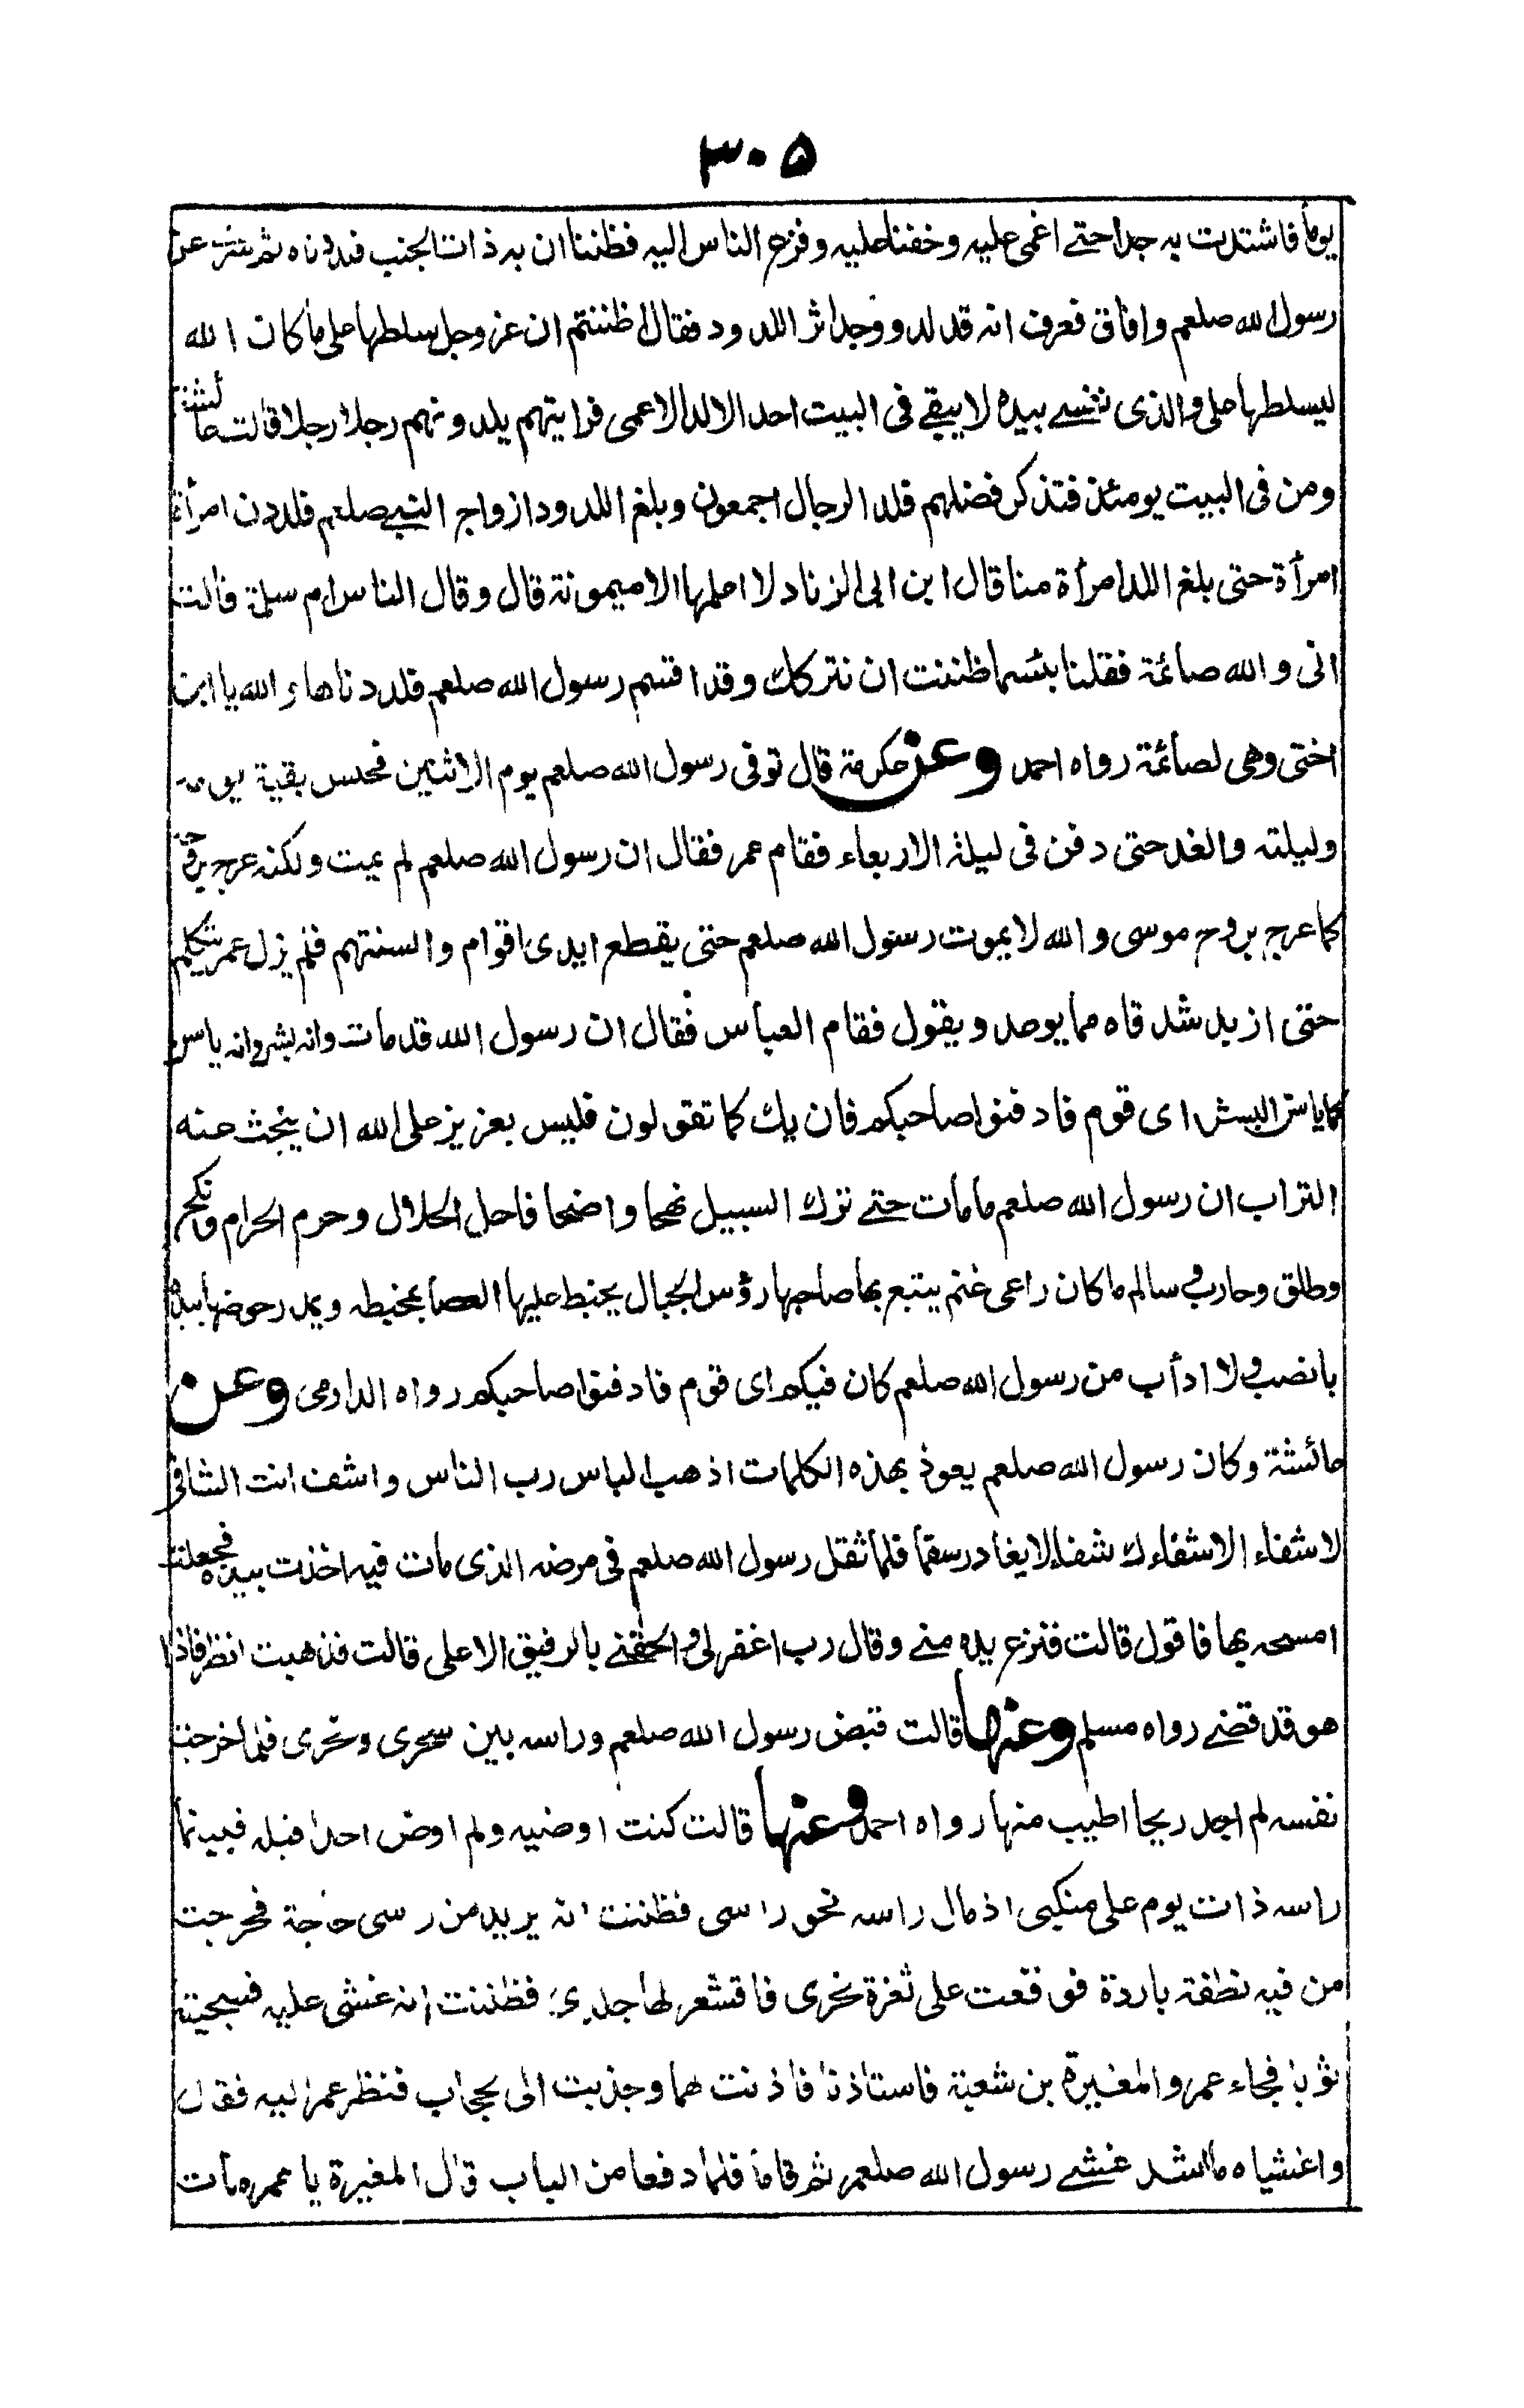 ۳۰۵
يوما فاشتدت به جدا حتے اغمى عليه وخفنا عليه وفزع الناس اليه فظننا ان به ذات الجنب فلددناه ثم سرى عن
رسول الله صلعم وافاق فعرف انه قد لد ووجد اثر اللدود فقال اظننتم ان عز وجل سلطها على ما كان الله
ليسلطها على والذى نفسے بيده لا يبقے فى البيت احد الا لد الا عمى فرايتهم يلدونهم رجلا رجلا قالت عائشة
ومن فى البيت يومئذ فتذكر فضلهم فلد الرجال اجمعون وبلغ اللدود ازواج النبے صلعم فلددن امرأة
امرأة حتى بلغ اللد امرأة منا قال ابن ابى الزناد لا اعلمها الا ميمونة قال وقال الناس ام سلمة قالت
انى والله صائمة فقلنا بئسما ظننت ان نتركك وقد اقسم رسول الله صلعم فلددناها والله يا ابن
اختى وهى لصائمة رواه احمد وعن عكرمة قال توفى رسول الله صلعم يوم الاثنين فحبس بقية يومه
وليلته والغد حتى دفن فى ليلة الاربعاء فقام عمر فقال ان رسول الله صلعم لم يمت ولكنه عرج بروحه
كما عرج بروح موسى والله لا يموت رسول الله صلعم حتى يقطع ايدى اقوام والسنتهم فلم يزل عمر يتكلم
حتى ازبد شدقاه مما يوعد ويقول فقام العباس فقال ان رسول الله قد مات وانه بشر وانه ياسن
كما ياسن البشر اى قوم فادفنوا صاحبكم فان يك كما تقولون فليس بعزيز على الله ان يبحث عنه
التراب ان رسول الله صلعم ما مات حتے ترك السبيل نهجا واضحا فاحل الحلال وحرم الحرام ونكح
وطلق وحارب وسالم ما كان راعى غنم يتبع بها صاحبها رؤس الجبال يخبط عليها العصا بمخبطه ويمدر حوضها بيده
بانصب ولا ادأب من رسول الله صلعم كان فيكم اى قوم فادفنوا صاحبكم رواه الدارمى وعن
عائشة وكان رسول الله صلعم يعوذ بهذه الكلمات اذهب الباس رب الناس واشف انت الشافى
لا شفاء الا شفاءك شفاء لا يغادر سقما فلما ثقل رسول الله صلعم فى مرضه الذى مات فيه اخذت بيده فجعلت
امسحه بها فاقول قالت فنزع يده منے وقال رب اغفر لى والحقنے بالرفيق الاعلى قالت فذهبت انظر فاذا
هو قد قضے رواه مسلم وعنها قالت قبض رسول الله صلعم وراسه بين سحرى ونحرى فلما خرجت
نفسه لم اجد ريحا اطيب منها رواه احمد وعنها قالت كنت اوضيه ولم اوض احدا قبله فبينما
راسه ذات يوم على منكبى اذ مال راسه نحو راسى فظننت انه يريد من رسى حاجة فخرجت
من فيه نطفة باردة فوقعت على ثغرة نحرى فاقشعر لها جلدى فظننت انه غشى عليه فسجيته
ثوبا فجاء عمر والمغيرة بن شعبة فاستاذنا فاذنت لهما وجذبت الى الحجاب فنظر عمر اليه فقال
واغشياه ما اشد غشے رسول الله صلعم ثم قاما فلما دفعا من الباب قال المغيرة يا عمر مات